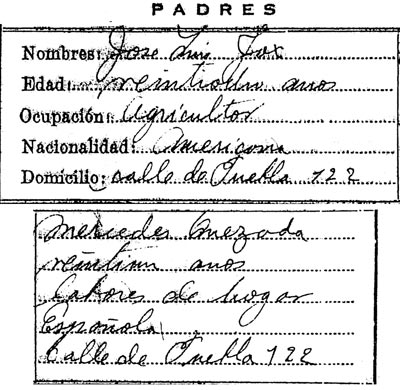 PADRES
Nombres: Jose Luis Fox
Edad: veintiun anos
Ocupación: Agricultor
Nacionalidad: Americana
Domicilio: calle de Puebla 122
Mercedes Quezada
veintiun anos
labores de hogar
Española
Calle de Puebla 122